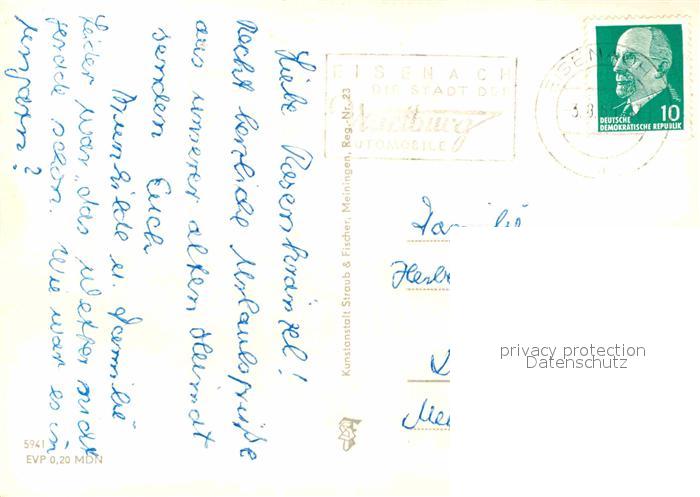 Liebe Rosenkränzel!
Recht herzliche Urlaubsgrüße
aus unserer alten Heimat
senden Euch
Brunhilde u. Familie
Leider war das Wetter nicht
gerade schön. Wie war es in
Ungarn?
5941
EVP 0,20 MDN
Kunstanstalt Straub & Fischer, Meiningen, Reg.-Nr. 23
EISENACH
DIE STADT DER
Wartburg
AUTOMOBILE
EISENACH
3.8.
10
DEUTSCHE
DEMOKRATISCHE REPUBLIK
Familie
privacy protection
Datenschutz